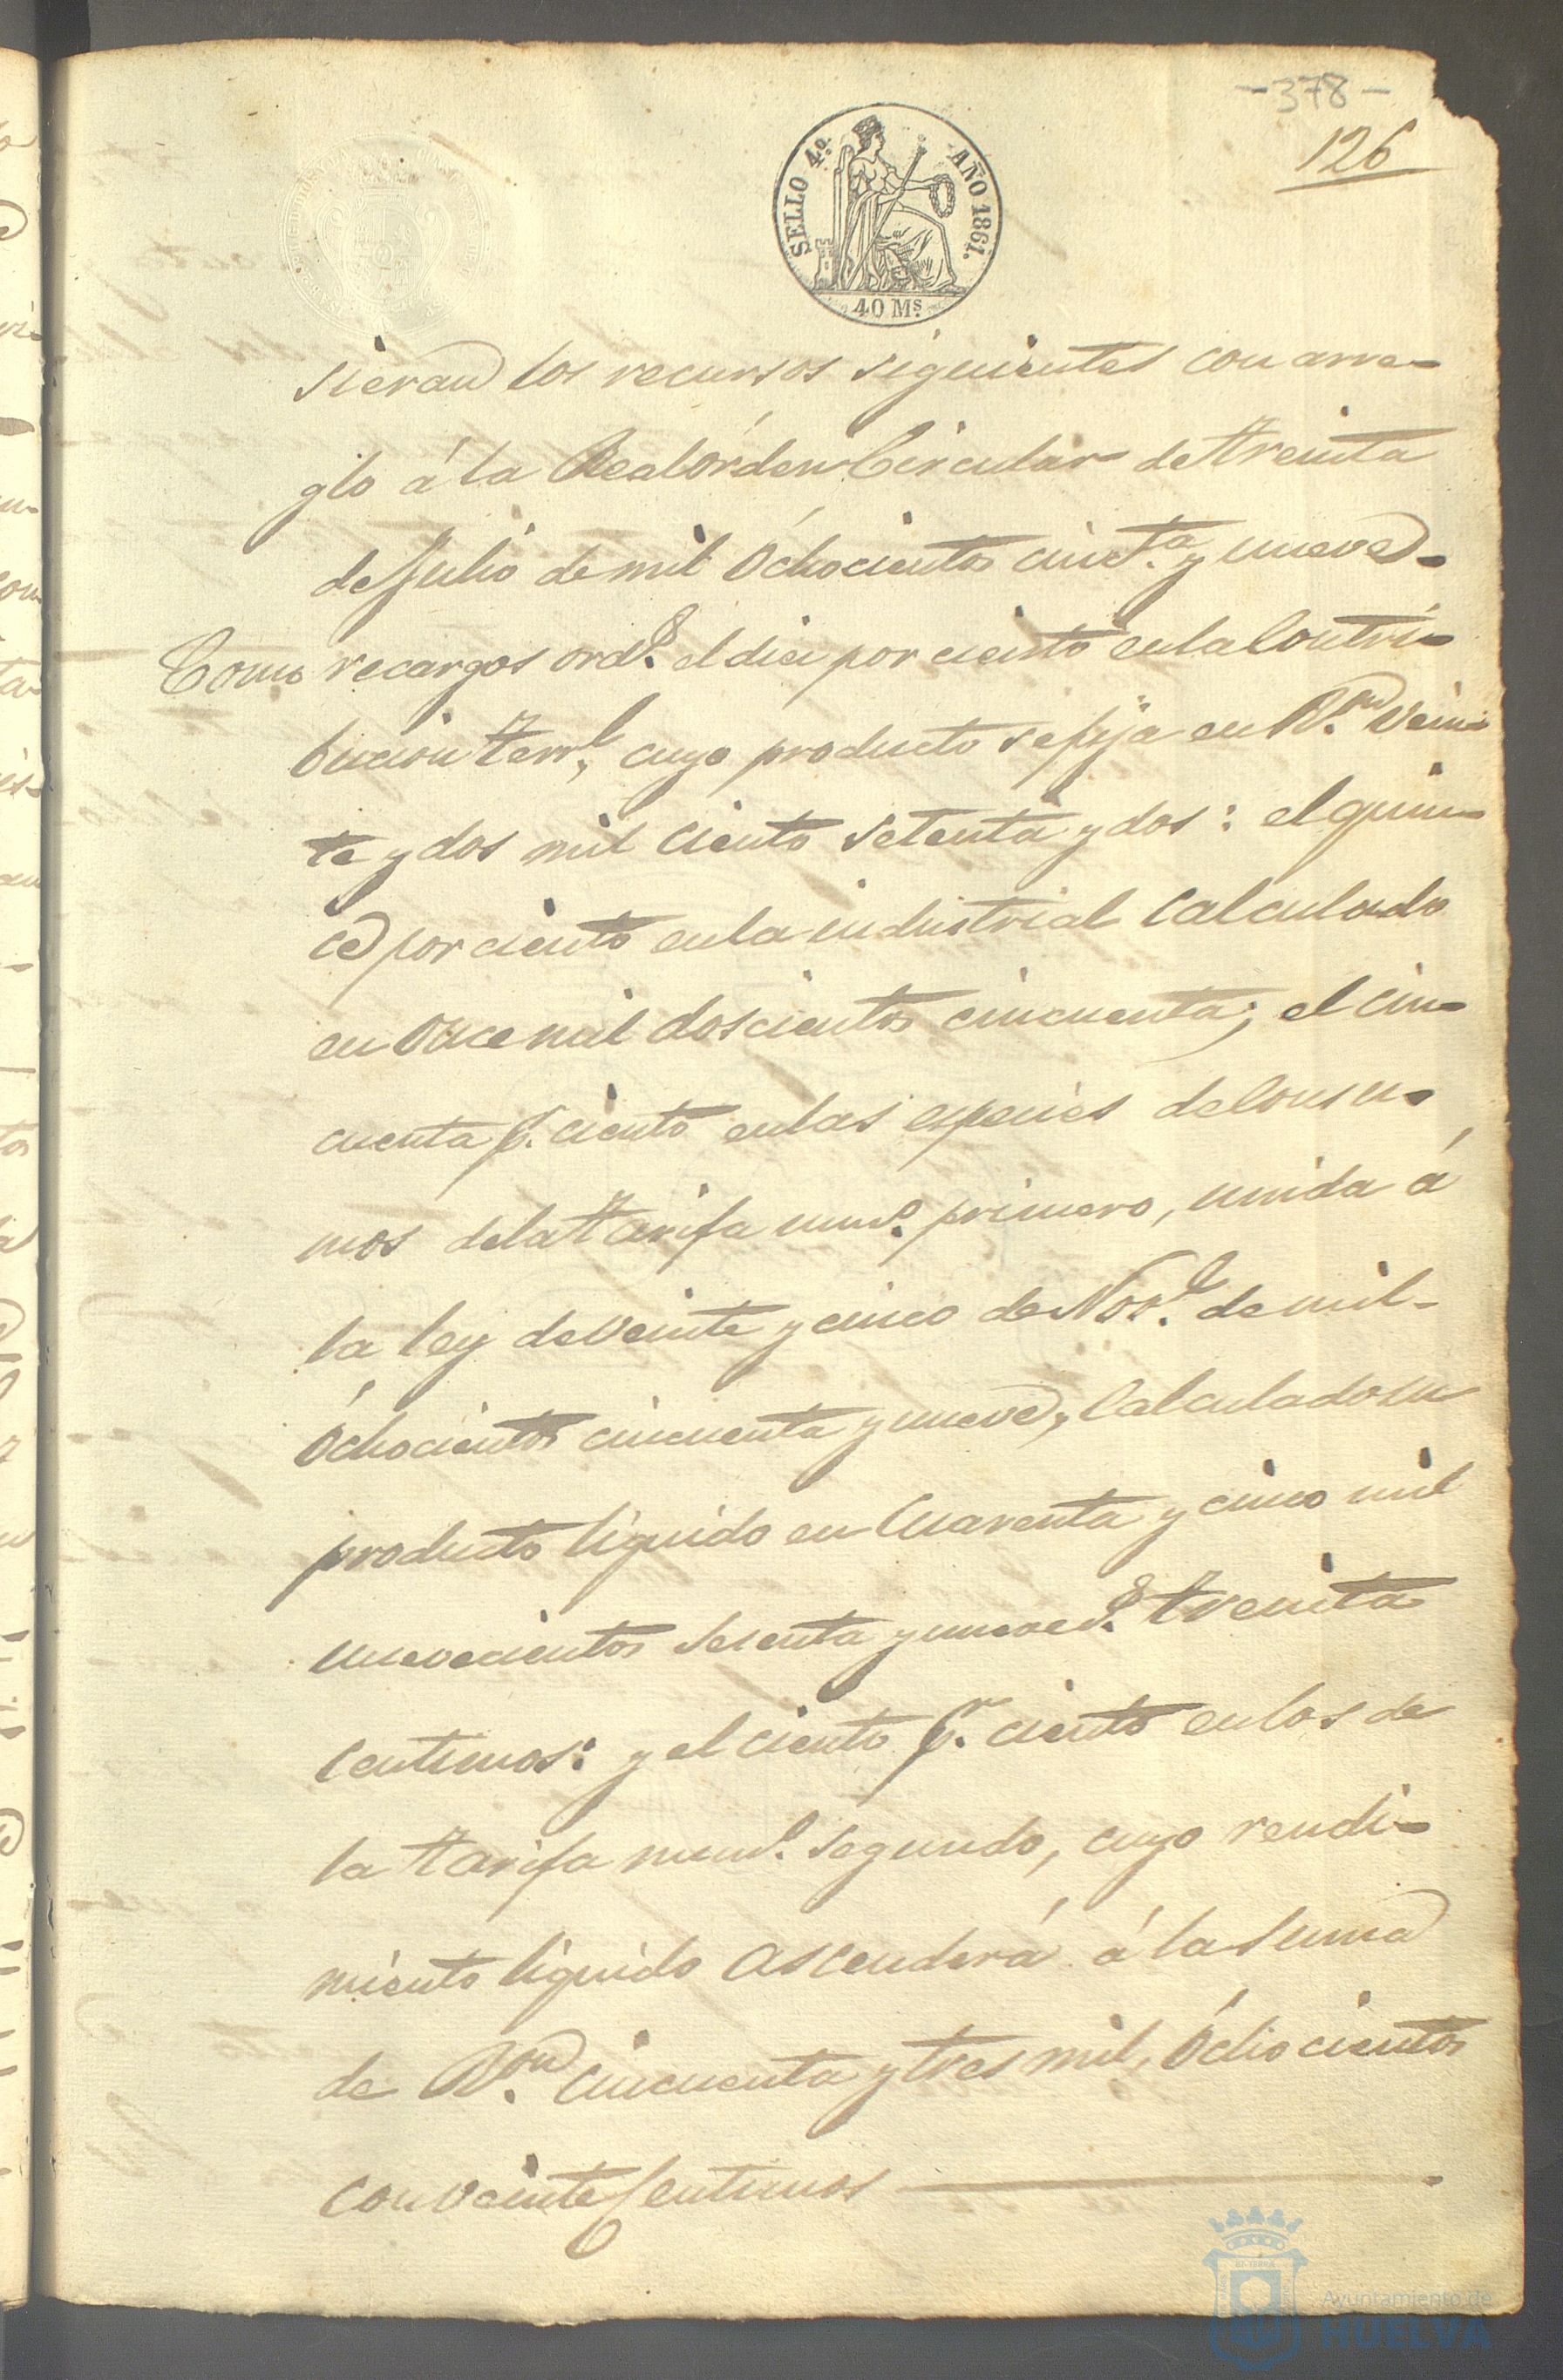 -378-
126
SELLO 4º. AÑO 1861.
40 Ms.
sieran los recursos siguientes con arre-
glo á la Real órden Circular de treinta
de Julio de mil óchocientos cincta. y nueve.
Como recargos ords. el diez por ciento en la Contri-
bucion terrl., cuyo producto se fija en Rvn. vein-
te y dos mil ciento setenta y dos: el quin-
ce por ciento en la industrial calculado
en once mil doscientos cincuenta; el cin-
cuenta p. ciento en las especies de consu-
mos de la tarifa numº. primero, unida á
la ley de veinte y cinco de Nove. de mil-
óchocientos cincuenta y nueve, calculado su
producto líquido en cuarenta y cinco mil
nuevecientos sesenta y nueve rs. treinta
centimos: y el ciento pr. ciento en los de
la tarifa numº. segundo, cuyo rendi-
miento líquido ascenderá á la suma
de Rvon. cincuenta y tres mil, óchocientos
con veinte centimos
Ayuntamiento de
HUELVA